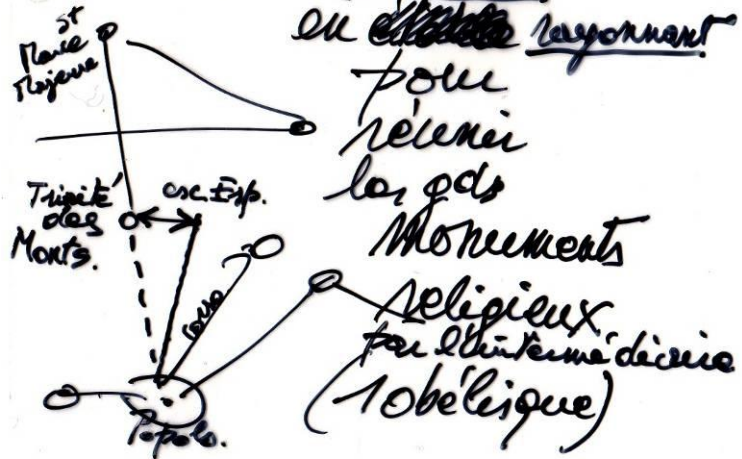 St
Marie
Majeure
Trinité
des
Monts.
esc. Esp.
corso
Popolo.
en rayonnant
pour
réunir
les gds
monuments
religieux
par l'intermédiaire
(1 obélisque)